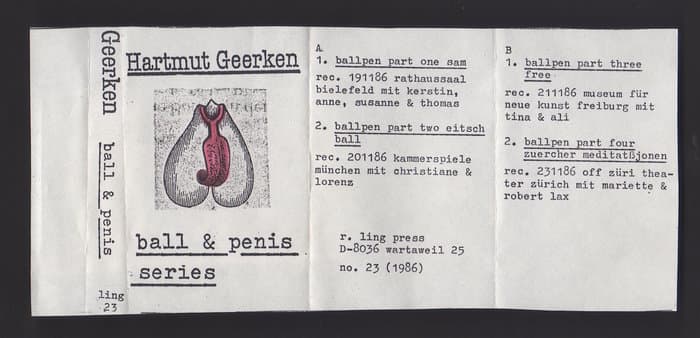 Geerken
ball & penis
ling
23
Hartmut Geerken
ball & penis
series
A
1. ballpen part one sam
rec. 191186 rathaussaal
bielefeld mit kerstin,
anne, susanne & thomas
2. ballpen part two eitsch
ball
rec. 201186 kammerspiele
münchen mit christiane &
lorenz
r. ling press
D-8036 wartaweil 25
no. 23 (1986)
B
1. ballpen part three
free
rec. 211186 museum für
neue kunst freiburg mit
tina & ali
2. ballpen part four
zuercher meditatßjonen
rec. 231186 off züri thea-
ter zürich mit mariette &
robert lax